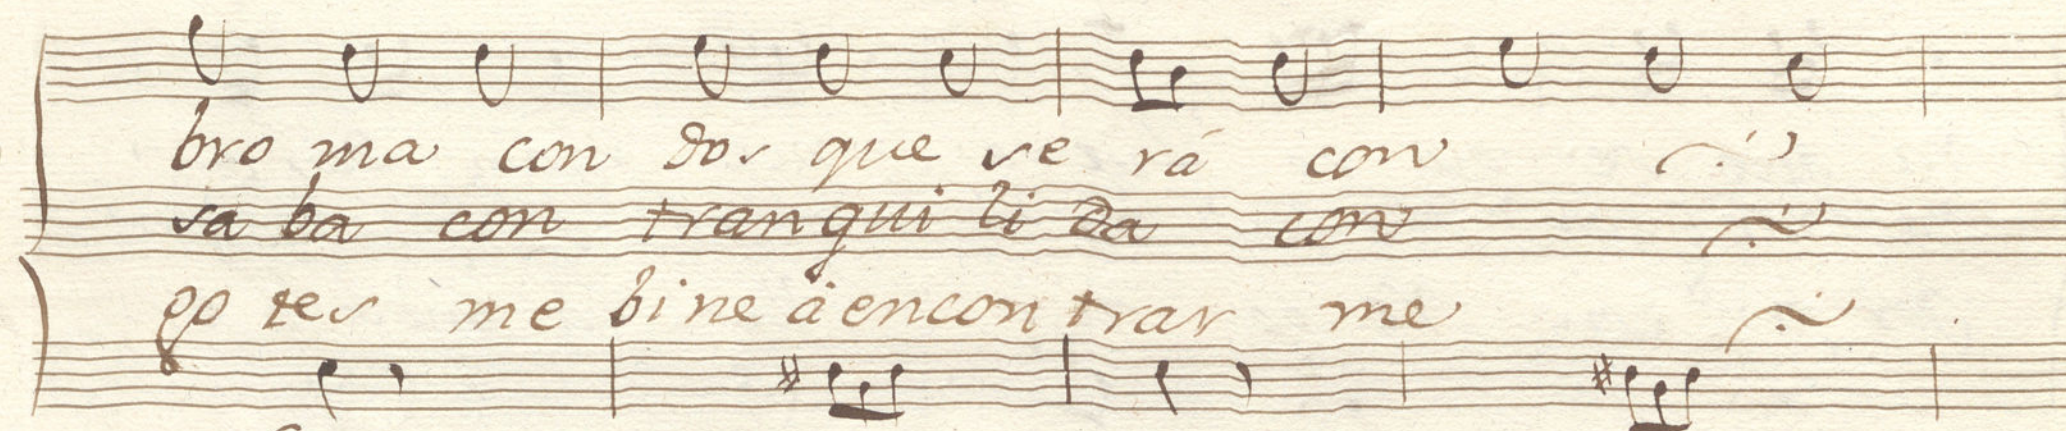 bro ma con dos que se rá con
sa ba con tran qui li da con
go tes me bi ne á en con trar me